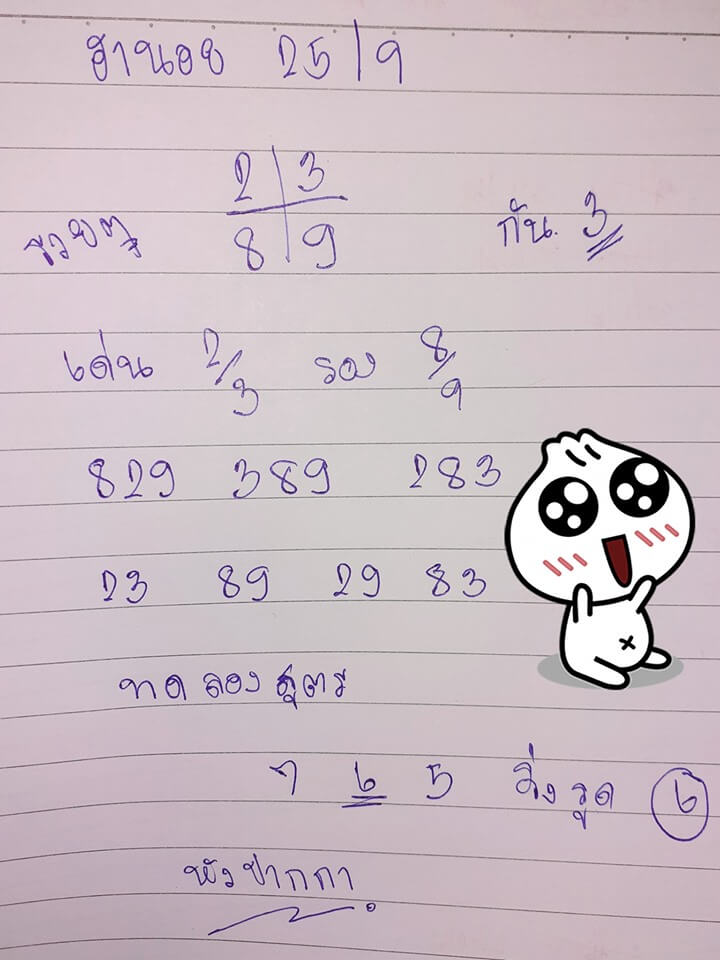 ฮานอย 25/9
2 3
รวยตู กัน. 3
8 9
เด่น 2/3 รอง 8/9
829 389 283
23 89 29 83
ทดลองสูตร
7 6 5 วิ่งรูด 6
หัวปากกา